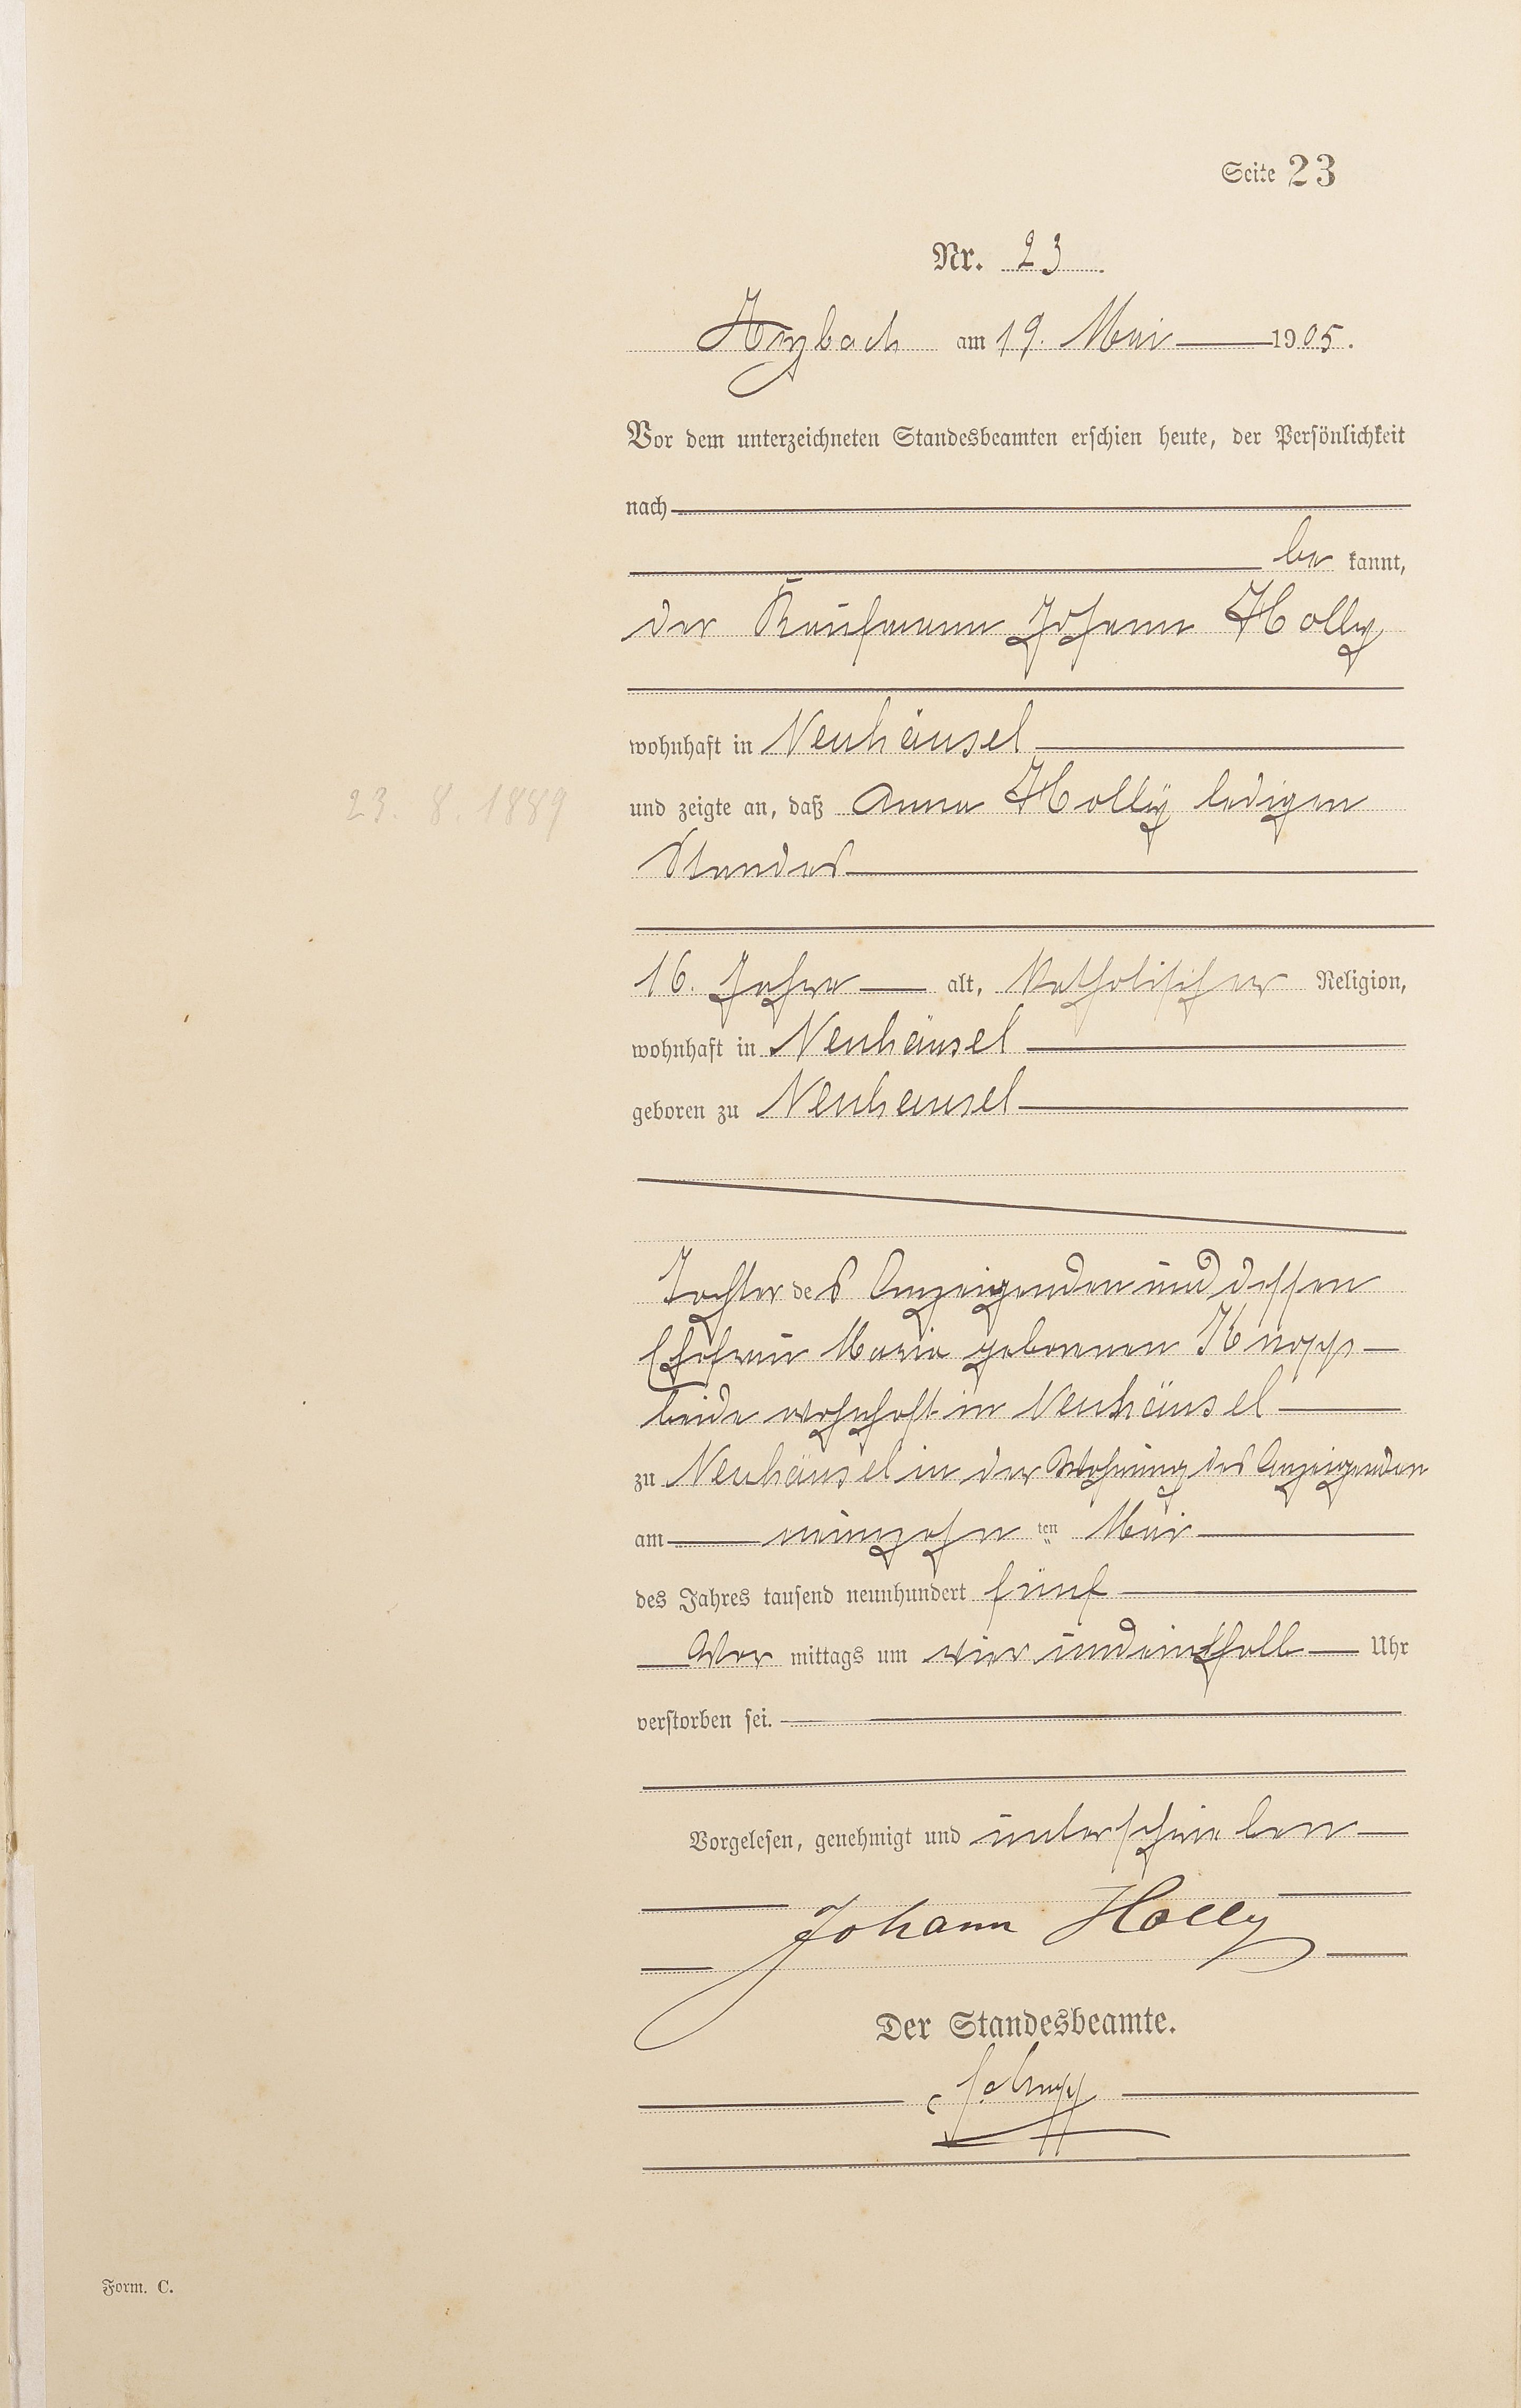 Seite 23
Nr. 23.
Arzbach am 19. Mai 1905.
Vor dem unterzeichneten Standesbeamten erschien heute, der Persönlichkeit
nach
be kannt,
der Kaufmann Johann Holly
wohnhaft in Neuhäusel
23. 8 1889
und zeigte an, daß Anna Holly ledigen
Standes
16. Jahre alt, katholischer Religion,
wohnhaft in Neuhäusel
geboren zu Neuhäusel
Tochter des Anzeigenden und dessen
Ehefrau Maria geborenen Knopp
beide wohnhaft in Neuhäusel
zu Neuhäusel in der Wohnung des Anzeigenden
am neunzehn ten Mai
des Jahres tausend neunhundert fünf
Vor mittags um vier undeinhalb Uhr
verstorben sei.
Vorgelesen, genehmigt und unterschrieben
Johann Holly
Der Standesbeamte.
Form. C.